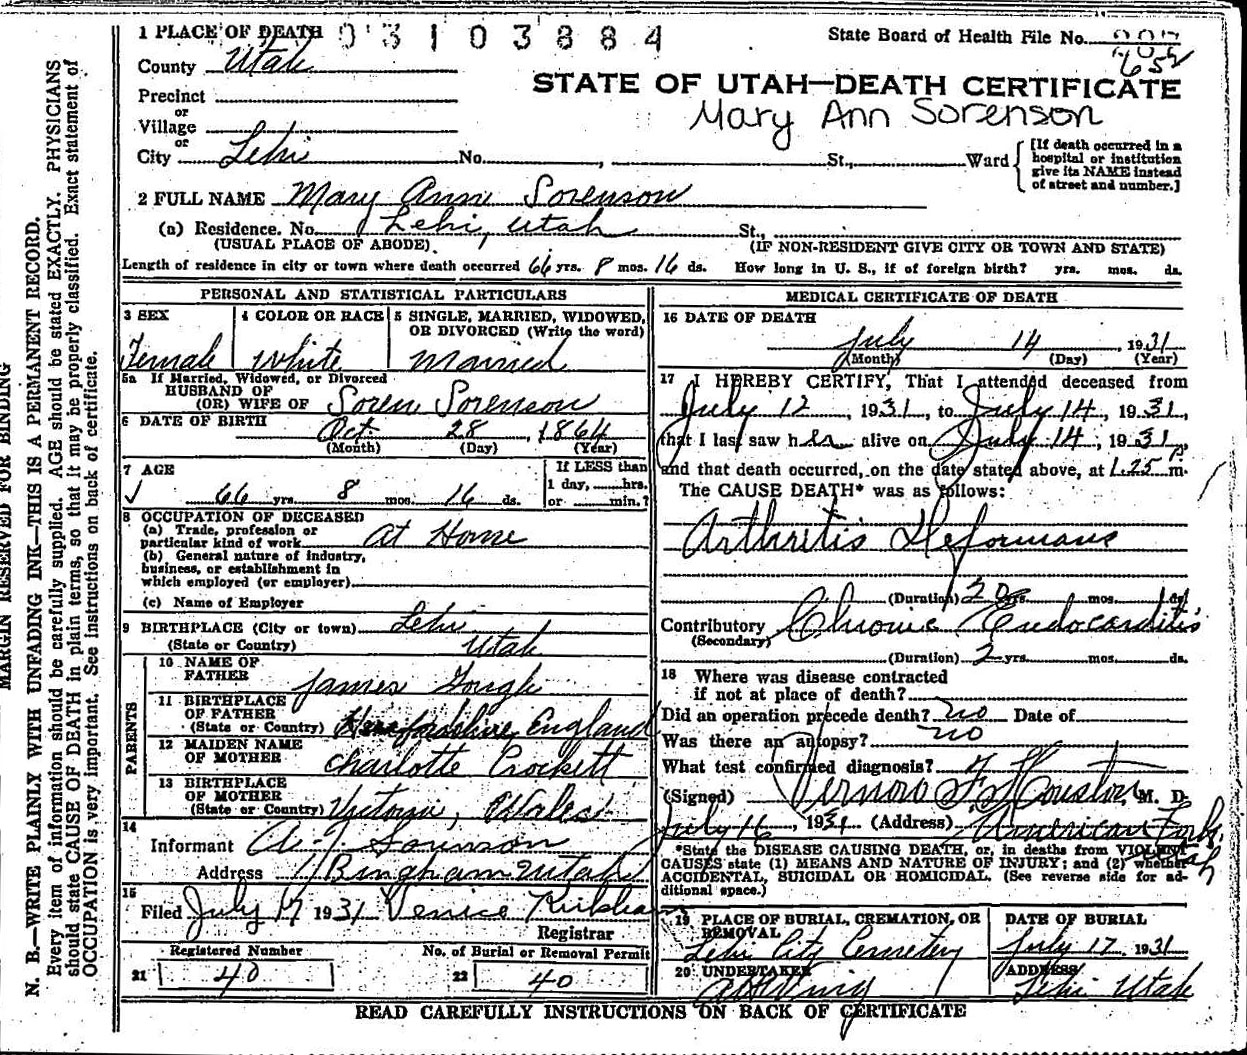 1 PLACE OF DEATH 03103884 State Board of Health File No.
County Utah 652
STATE OF UTAH—DEATH CERTIFICATE
Precinct
or
Village
Mary Ann Sorenson
or
City Lehi No. , St., Ward
[If death occurred in a hospital or institution give its NAME instead of street and number.]
2 FULL NAME Mary Ann Sorenson
(a) Residence. No. Lehi, Utah St.,
(USUAL PLACE OF ABODE) (IF NON-RESIDENT GIVE CITY OR TOWN AND STATE)
Length of residence in city or town where death occurred 66 yrs. 8 mos. 16 ds. How long in U. S., if of foreign birth? yrs. mos. ds.
PERSONAL AND STATISTICAL PARTICULARS
3 SEX
Female
4 COLOR OR RACE
White
5 SINGLE, MARRIED, WIDOWED,
OR DIVORCED (Write the word)
Married
5a If Married, Widowed, or Divorced
HUSBAND OF
(OR) WIFE OF Soren Sorenson
6 DATE OF BIRTH Oct. 28, 1864
(Month) (Day) (Year)
7 AGE
66 yrs. 8 mos. 16 ds.
If LESS than
1 day, hrs.
or min.?
8 OCCUPATION OF DECEASED
(a) Trade, profession or
particular kind of work At Home
(b) General nature of industry,
business, or establishment in
which employed (or employer)
(c) Name of Employer
9 BIRTHPLACE (City or town) Lehi
(State or Country) Utah
PARENTS
10 NAME OF
FATHER James Gough
11 BIRTHPLACE
OF FATHER
(State or Country) Herefordshire, England
12 MAIDEN NAME
OF MOTHER Charlotte Crockett
13 BIRTHPLACE
OF MOTHER
(State or Country) Victoria, Wales
14
Informant A. J. Sorenson
Address Bingham Utah
15
Filed July 17 1931 Venice Kirkham
Registrar
Registered Number No. of Burial or Removal Permit
21 40 22 40
MEDICAL CERTIFICATE OF DEATH
16 DATE OF DEATH
July 14 1931
(Month) (Day) (Year)
17 I HEREBY CERTIFY, That I attended deceased from
July 12, 1931, to July 14, 1931,
that I last saw her alive on July 14, 1931,
and that death occurred, on the date stated above, at 1.25 P. m.
The CAUSE DEATH* was as follows:
Arthritis Deformans
(Duration) 20 yrs. mos. ds.
Contributory Chronic Endocarditis
(Secondary)
(Duration) 2 yrs. mos. ds.
18 Where was disease contracted
if not at place of death?
Did an operation precede death? no Date of
Was there an autopsy? no
What test confirmed diagnosis?
(Signed) Vernon F. Houston, M. D.
July 16, 1931 (Address) American Fork, Utah
*State the DISEASE CAUSING DEATH, or, in deaths from VIOLENT
CAUSES state (1) MEANS AND NATURE OF INJURY; and (2) whether
ACCIDENTAL, SUICIDAL OR HOMICIDAL. (See reverse side for ad-
ditional space.)
19 PLACE OF BURIAL, CREMATION, OR
REMOVAL
Lehi City Cemetery
DATE OF BURIAL
July 17 1931
20 UNDERTAKER
ADDRESS
Lehi Utah
READ CAREFULLY INSTRUCTIONS ON BACK OF CERTIFICATE
MARGIN RESERVED FOR BINDING
N. B.—WRITE PLAINLY WITH UNFADING INK—THIS IS A PERMANENT RECORD.
Every item of information should be carefully supplied. AGE should be stated EXACTLY. PHYSICIANS
should state CAUSE OF DEATH in plain terms, so that it may be properly classified. Exact statement of
OCCUPATION is very important. See instructions on back of certificate.